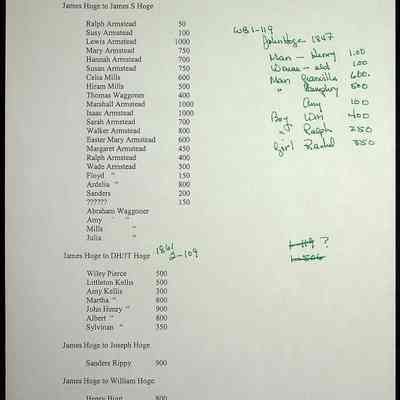 James Hoge to James S Hoge
Ralph Armstead 50
Susy Armstead 100
Lewis Armstead 1000
Mary Armstead 750
Hannah Armstead 700
Susan Armstead 750
Celia Mills 600
Hiram Mills 500
Thomas Waggoner 400
Marshall Armstead 1000
Isaac Armstead 1000
Sarah Armstead 700
Walker Armstead 800
Easter Mary Armstead 600
Margaret Armstead 450
Ralph Armstead 400
Wade Armstead 500
Floyd " 150
Ardelia " 800
Sanders 200
?????? 150
Abraham Waggoner
Amy " "
Mills "
Julia "
WB1-119
John Hoge 1847
Man - Henry 100
- old 100
Man Granville 600.
" Humphry 500
Amy 100
Boy Wm 400
" Ralph 250
Girl Rachel 350
James Hoge to DH?T Hoge 1861
2-109
Wiley Pierce 500
Littleton Kellis 500
Amy Kellis 300
Martha " 800
John Henry " 900
Albert " 800
Sylvinan " 350
1-119 ?
James Hoge to Joseph Hoge
Sanders Rippy 900
James Hoge to William Hoge
Henry 800